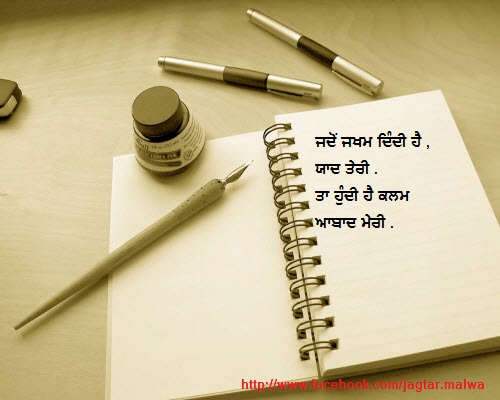 ਜਦੋਂ ਜਖਮ ਦਿੰਦੀ ਹੈ ,
ਯਾਦ ਤੇਰੀ .
ਤਾ ਹੁੰਦੀ ਹੈ ਕਲਮ
ਆਬਾਦ ਮੇਰੀ .
http://www.facebook.com/jagtar.malwa